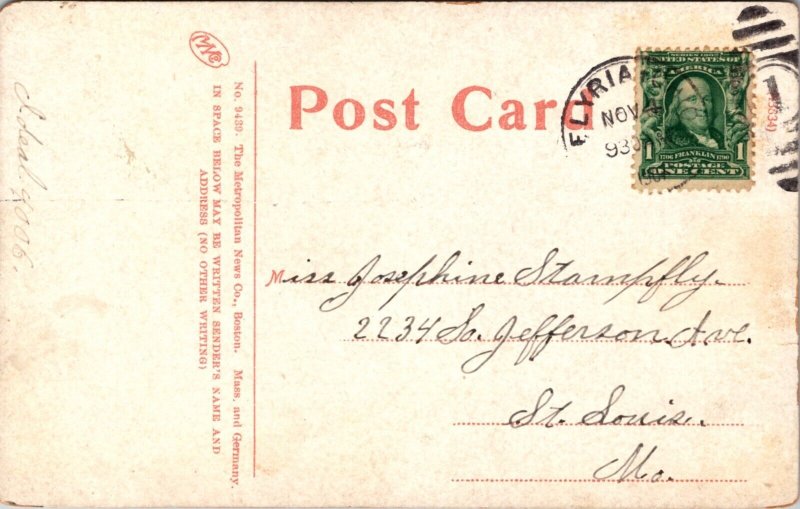 Post Card
ELYRIA
NOV
930
1
SERIES 1902
UNITED STATES OF
AMERICA
1706 FRANKLIN 1790
1 POSTAGE 1
ONE CENT
Miss Josephine Stampfly.
2234 So. Jefferson Ave.
St. Louis.
Mo.
No. 9439. The Metropolitan News Co., Boston. Mass. and Germany.
IN SPACE BELOW MAY BE WRITTEN SENDER'S NAME AND
ADDRESS (NO OTHER WRITING)